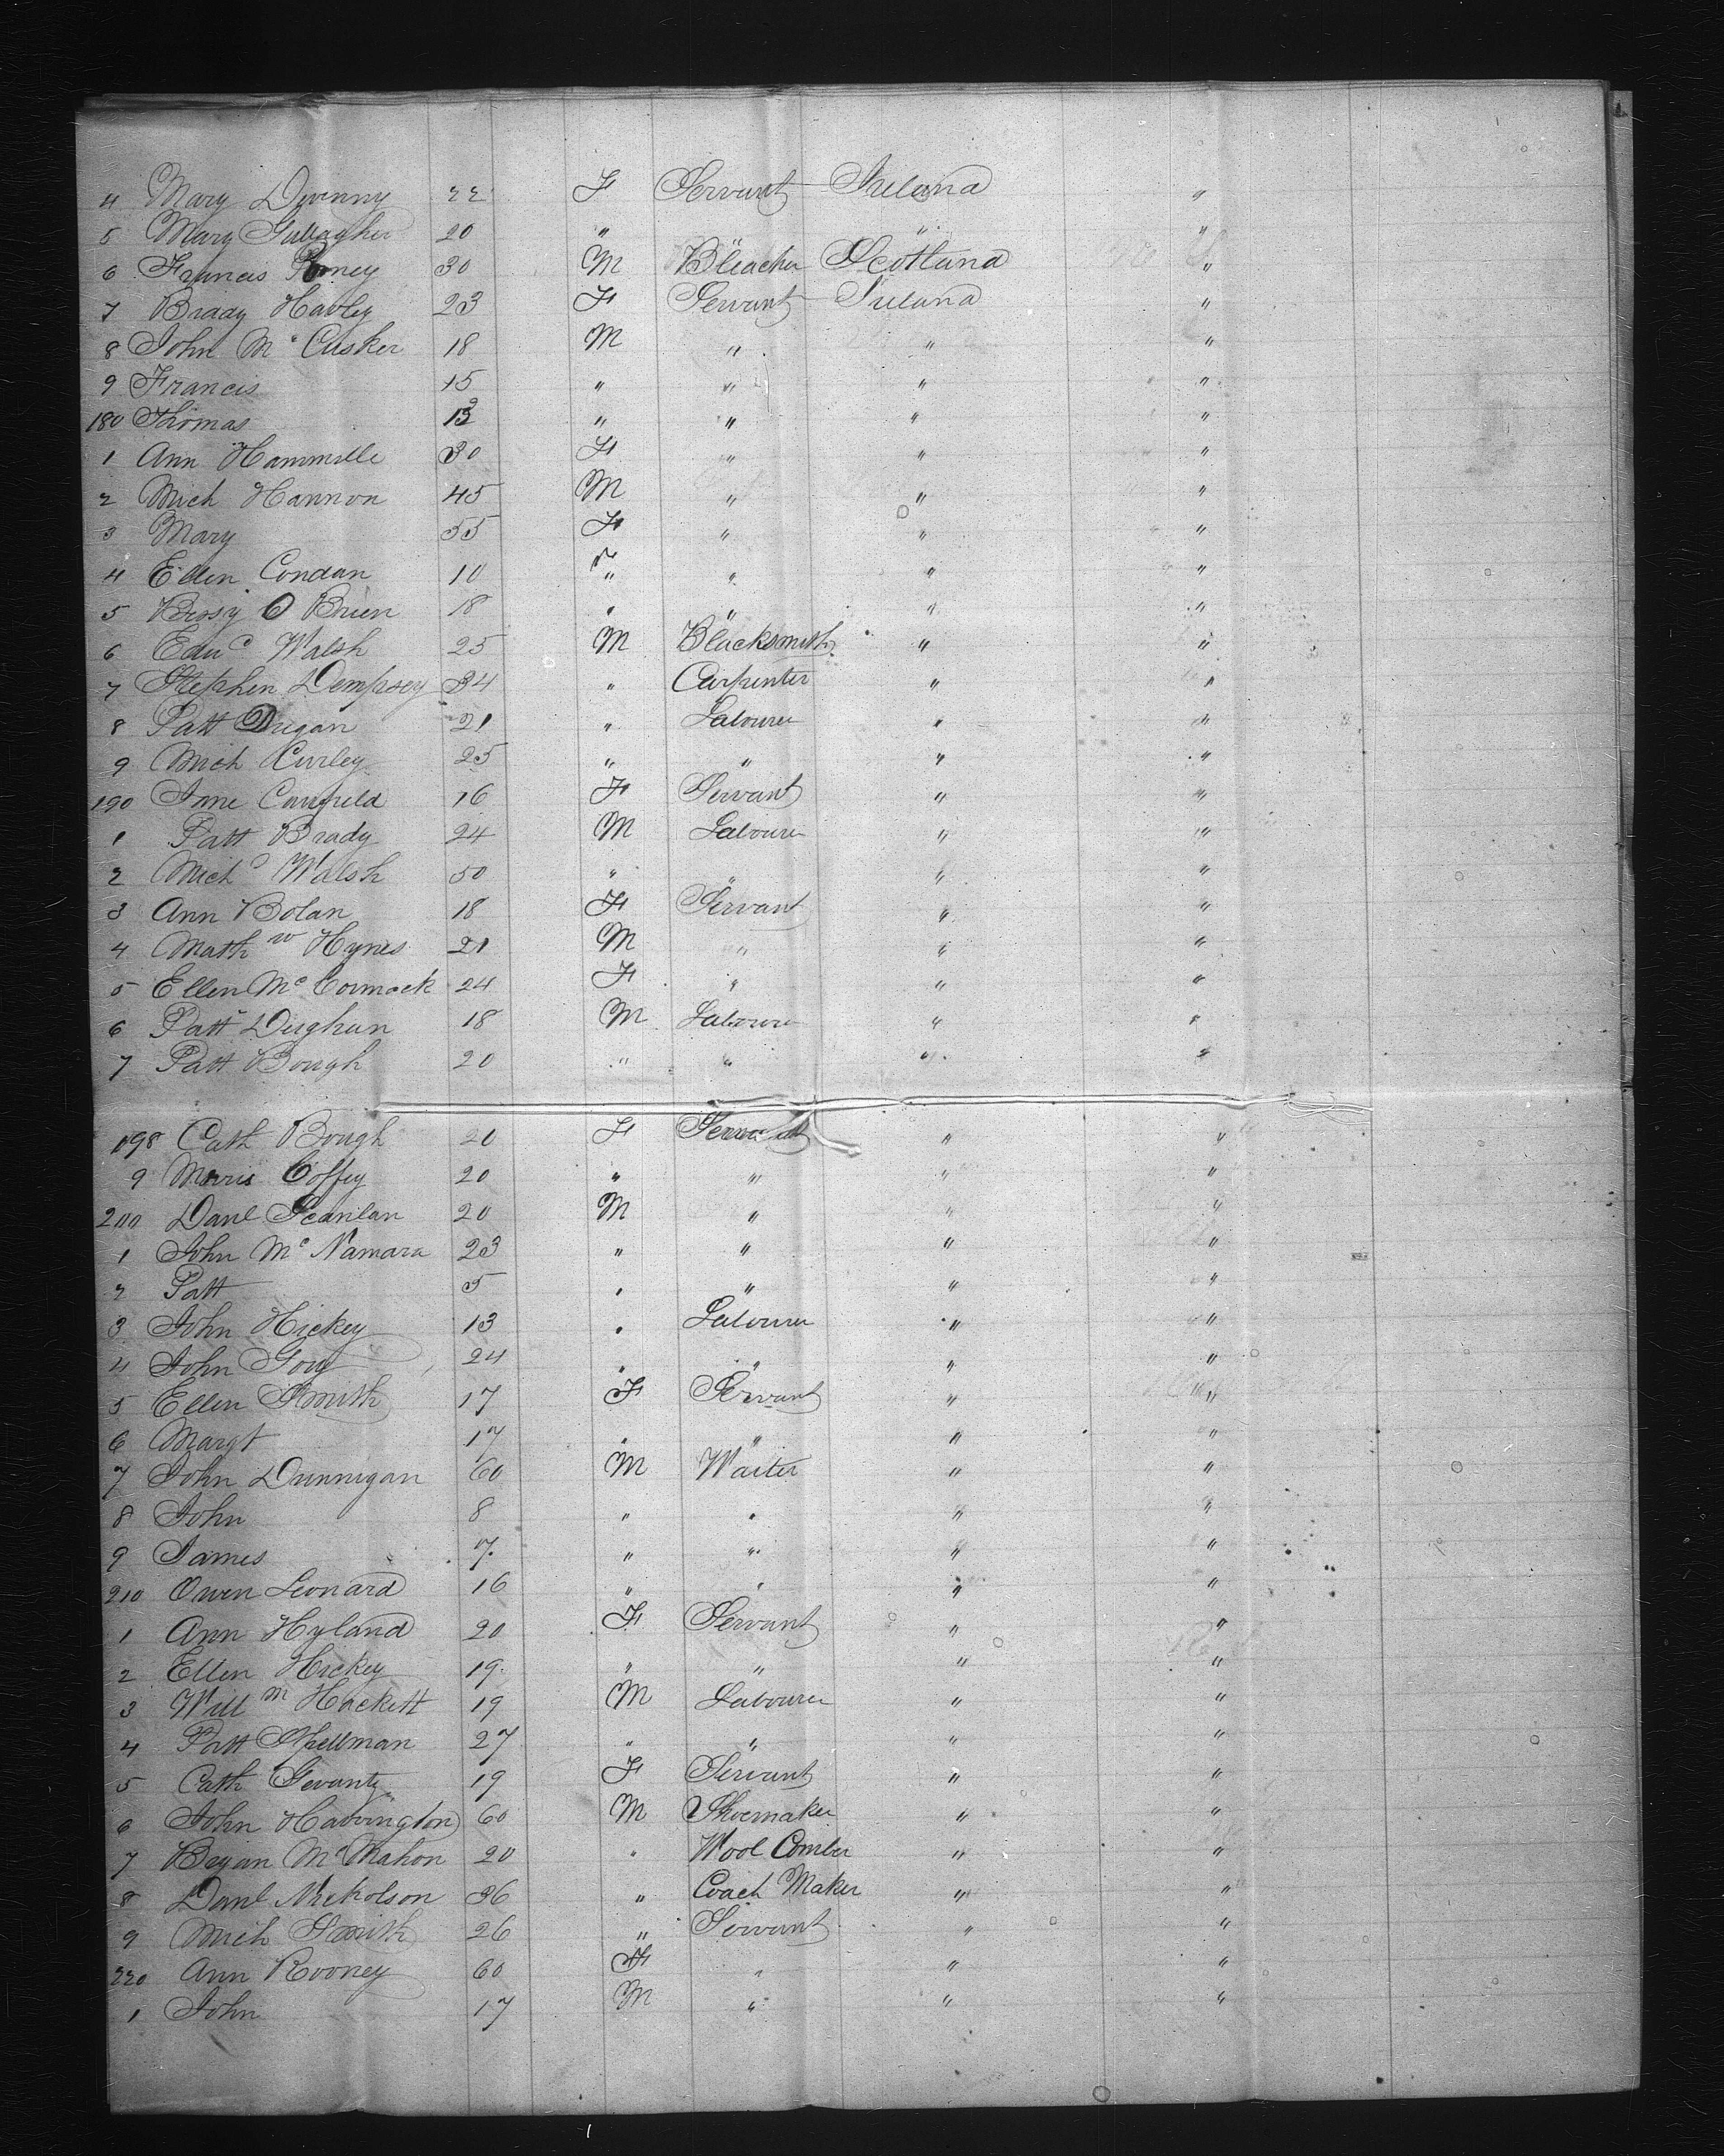 4 Mary Divinny 22 F Servant Ireland "
5 Mary Gallagher 20 " " " "
6 Francis 30 M Bleacher Scotland "
7 Brady Hartey 23 F Servant Ireland "
8 John Mc Cusker 18 M " " "
9 Francis 15 " " " "
180 Thomas 13 " " " "
1 Ann Hammille 30 F " " "
2 Mich Hannon 45 M " " "
3 Mary 55 F " " "
4 Ellen Condan 10 " " " "
5 Bessy O Brien 18 " " " "
6 Edwd Walsh 25 M Blacksmith " "
7 Stephen Dempsey 34 " Carpenter " "
8 Patt Dugan 21 " Labourer " "
9 Mich Curley 25 " " " "
190 Jane Canfield 16 F Servant " "
1 Patt Brady 24 M Labourer " "
2 Mich Walsh 50 " " " "
3 Ann Bolan 18 F Servant " "
4 Mathw Hynes 21 M " " "
5 Ellen Mc Cormack 24 F " " "
6 Patt Dughan 18 M Labourer " "
7 Patt Bough 20 " " " "
198 Cath Bough 20 F Servant " "
9 Morris Coffey 20 " " " "
200 Danl Scanlan 20 M " " "
1 John Mc Namara 23 " " " "
2 Patt 5 " " " "
3 John Hickey 13 " Labourer " "
4 John 24 " " " "
5 Ellen Smith 17 F Servant " "
6 Margt 17 " " " "
7 John Dunnigan 60 M Waiter " "
8 John 8 " " " "
9 James 7 " " " "
210 Owen Leonard 16 " " " "
1 Ann Hyland 20 F Servant " "
2 Ellen Hickey 19 " " " "
3 Willm Hackett 19 M Labourer " "
4 Patt Spellman 27 " " " "
5 Cath Gevanty 19 F Servant " "
6 John Harrington 60 M Shoemaker " "
7 Bryan Mc Mahon 20 " Wool Comber " "
8 Danl Nickolson 36 " Coach Maker " "
9 Mich Smith 26 " Servant " "
220 Ann Rooney 60 F " " "
1 John 17 M " " "